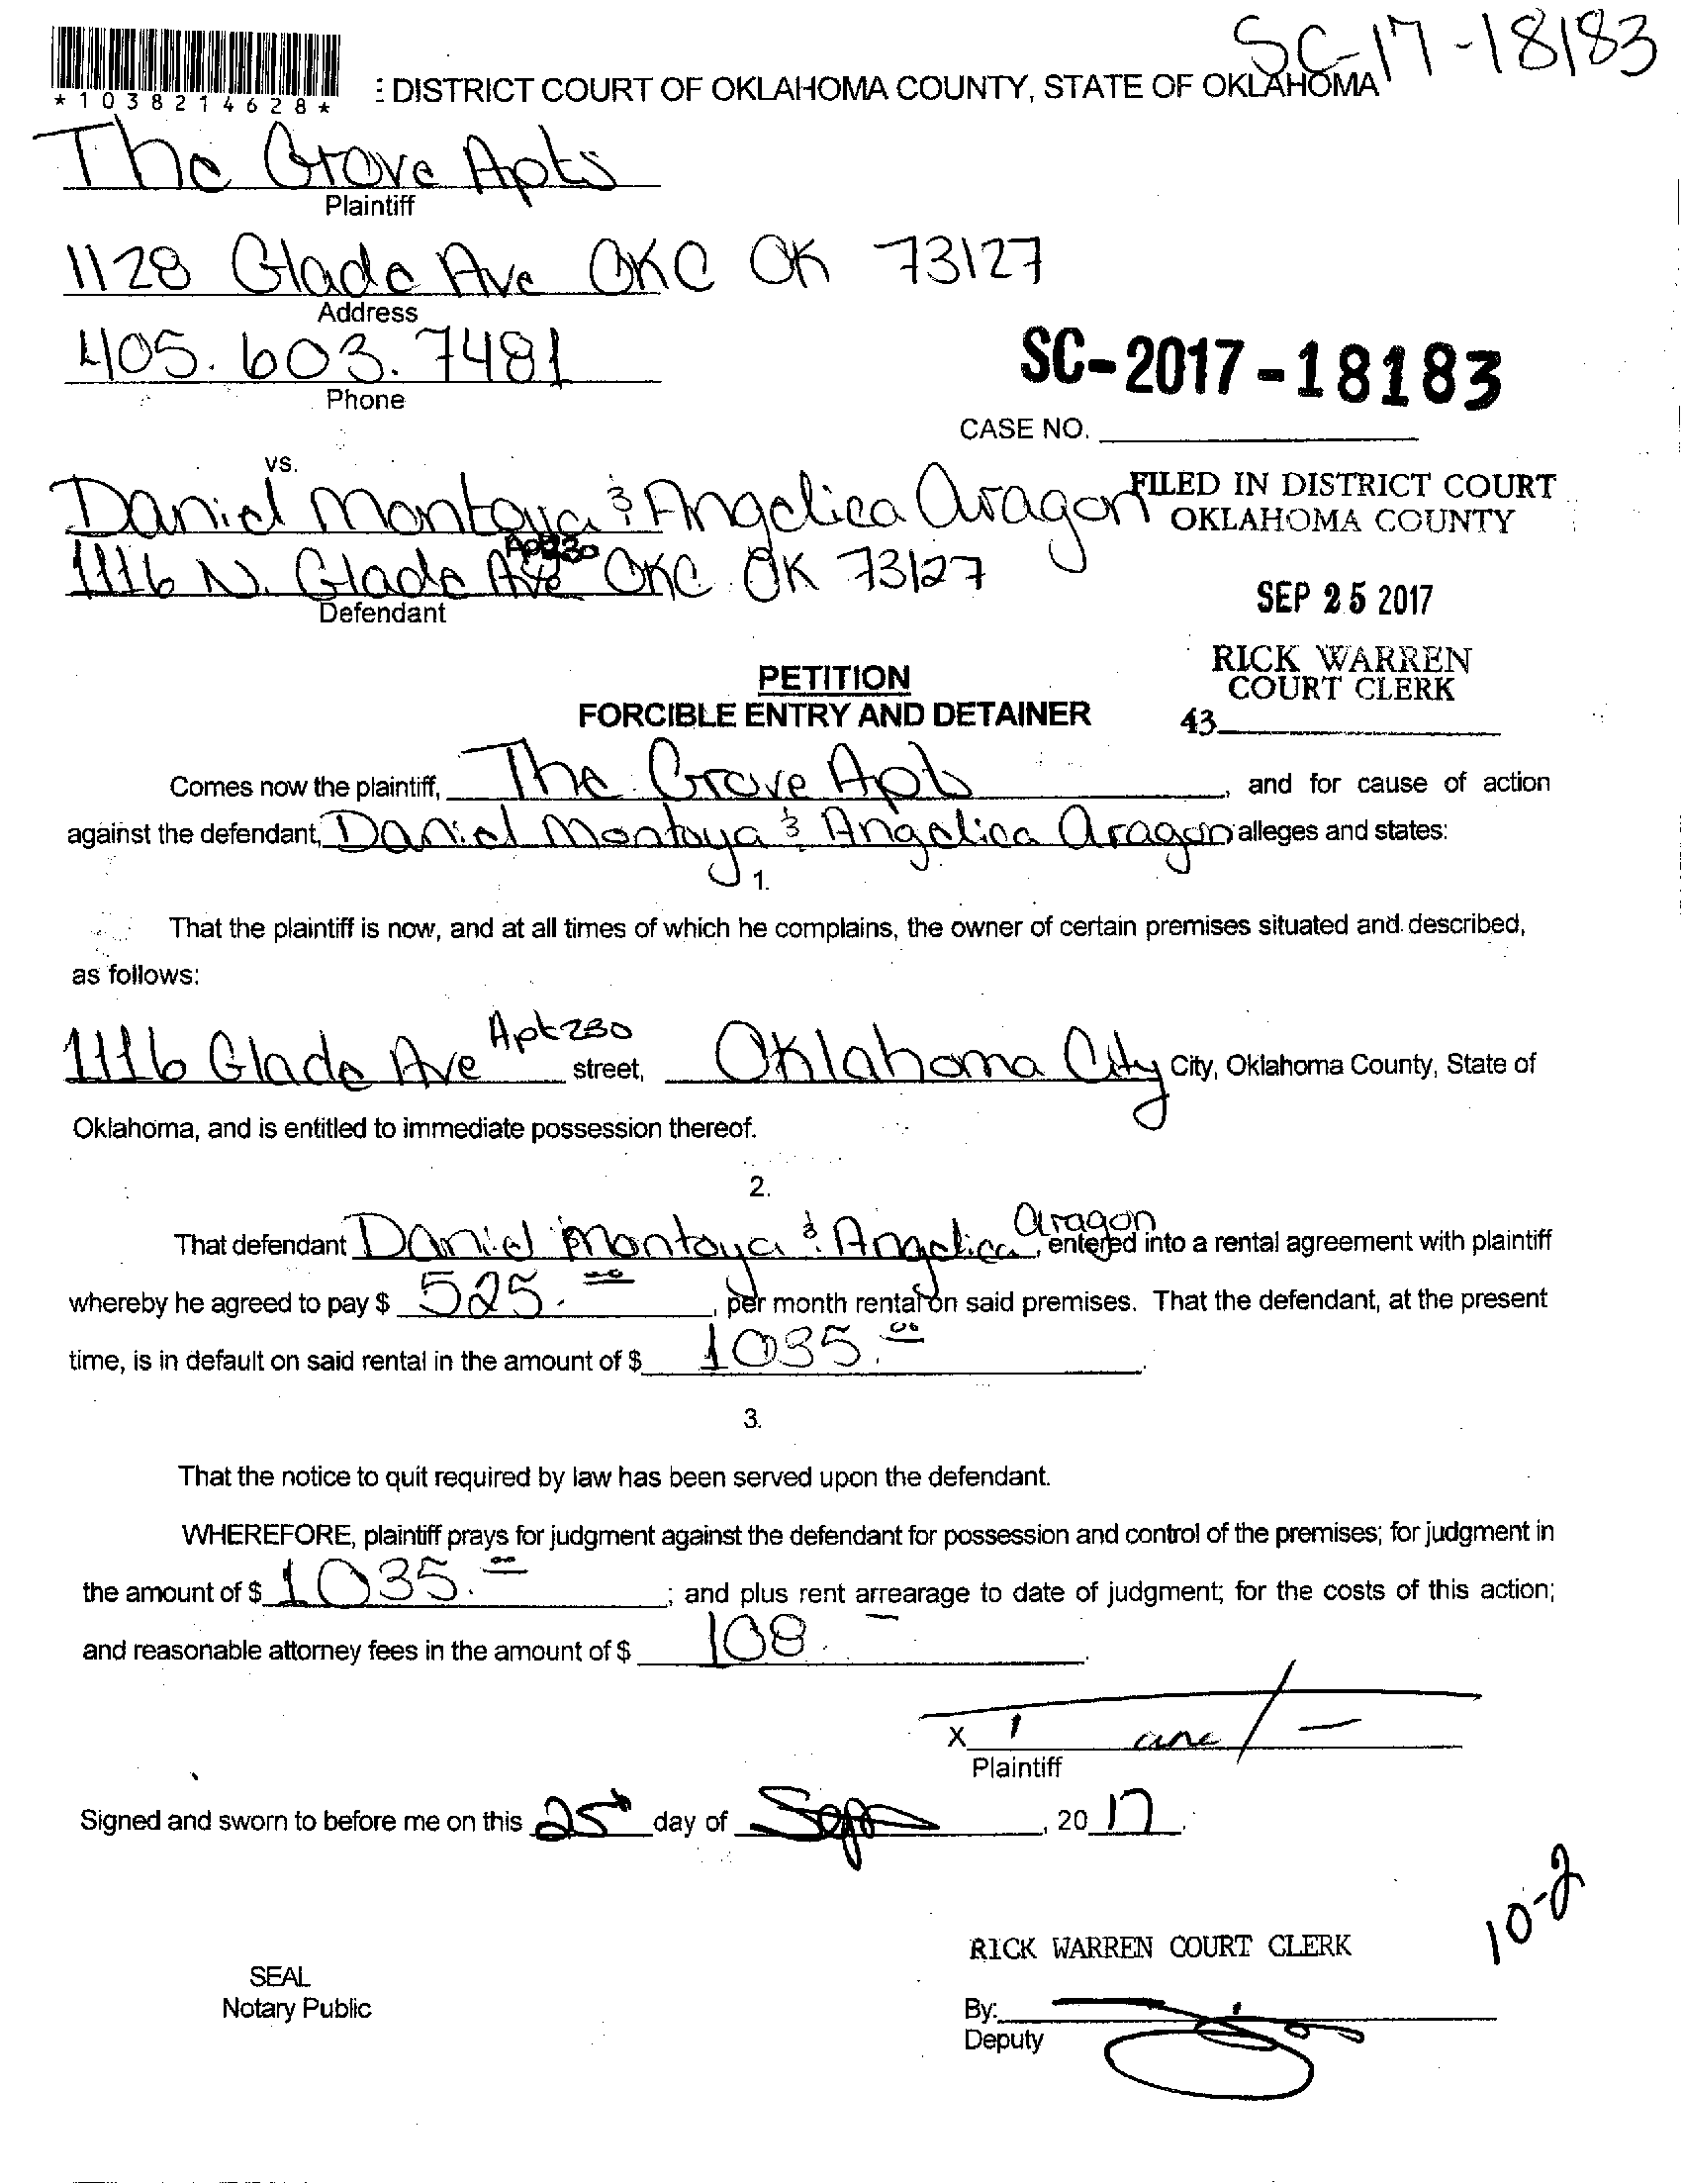 SC-17-18183
*1038214628*
: DISTRICT COURT OF OKLAHOMA COUNTY, STATE OF OKLAHOMA
The Grove Apts
Plaintiff
1128 Glade Ave OKC OK 73127
Address
405.603.7481
Phone
SC-2017-18183
CASE NO.
vs.
Daniel Montoya & Angelica Aragon
FILED IN DISTRICT COURT
OKLAHOMA COUNTY
1116 N. Glade Ave Apt 230 OKC OK 73127
Defendant
SEP 25 2017
RICK WARREN
COURT CLERK
43
PETITION
FORCIBLE ENTRY AND DETAINER
Comes now the plaintiff, The Grove Apts, and for cause of action
against the defendant, Daniel Montoya & Angelica Aragon alleges and states:
1.
That the plaintiff is now, and at all times of which he complains, the owner of certain premises situated and described,
as follows:
1116 Glade Ave Apt 230 street, Oklahoma City City, Oklahoma County, State of
Oklahoma, and is entitled to immediate possession thereof.
2.
That defendant Daniel Montoya & Angelica Aragon, entered into a rental agreement with plaintiff
whereby he agreed to pay $ 525.00, per month rental on said premises. That the defendant, at the present
time, is in default on said rental in the amount of $ 1035.00.
3.
That the notice to quit required by law has been served upon the defendant.
WHEREFORE, plaintiff prays for judgment against the defendant for possession and control of the premises; for judgment in
the amount of $ 1035.00; and plus rent arrearage to date of judgment; for the costs of this action;
and reasonable attorney fees in the amount of $ 108.-.
X
Plaintiff
Signed and sworn to before me on this 25th day of Sept, 2017.
10-2
RICK WARREN COURT CLERK
SEAL
Notary Public
By:
Deputy